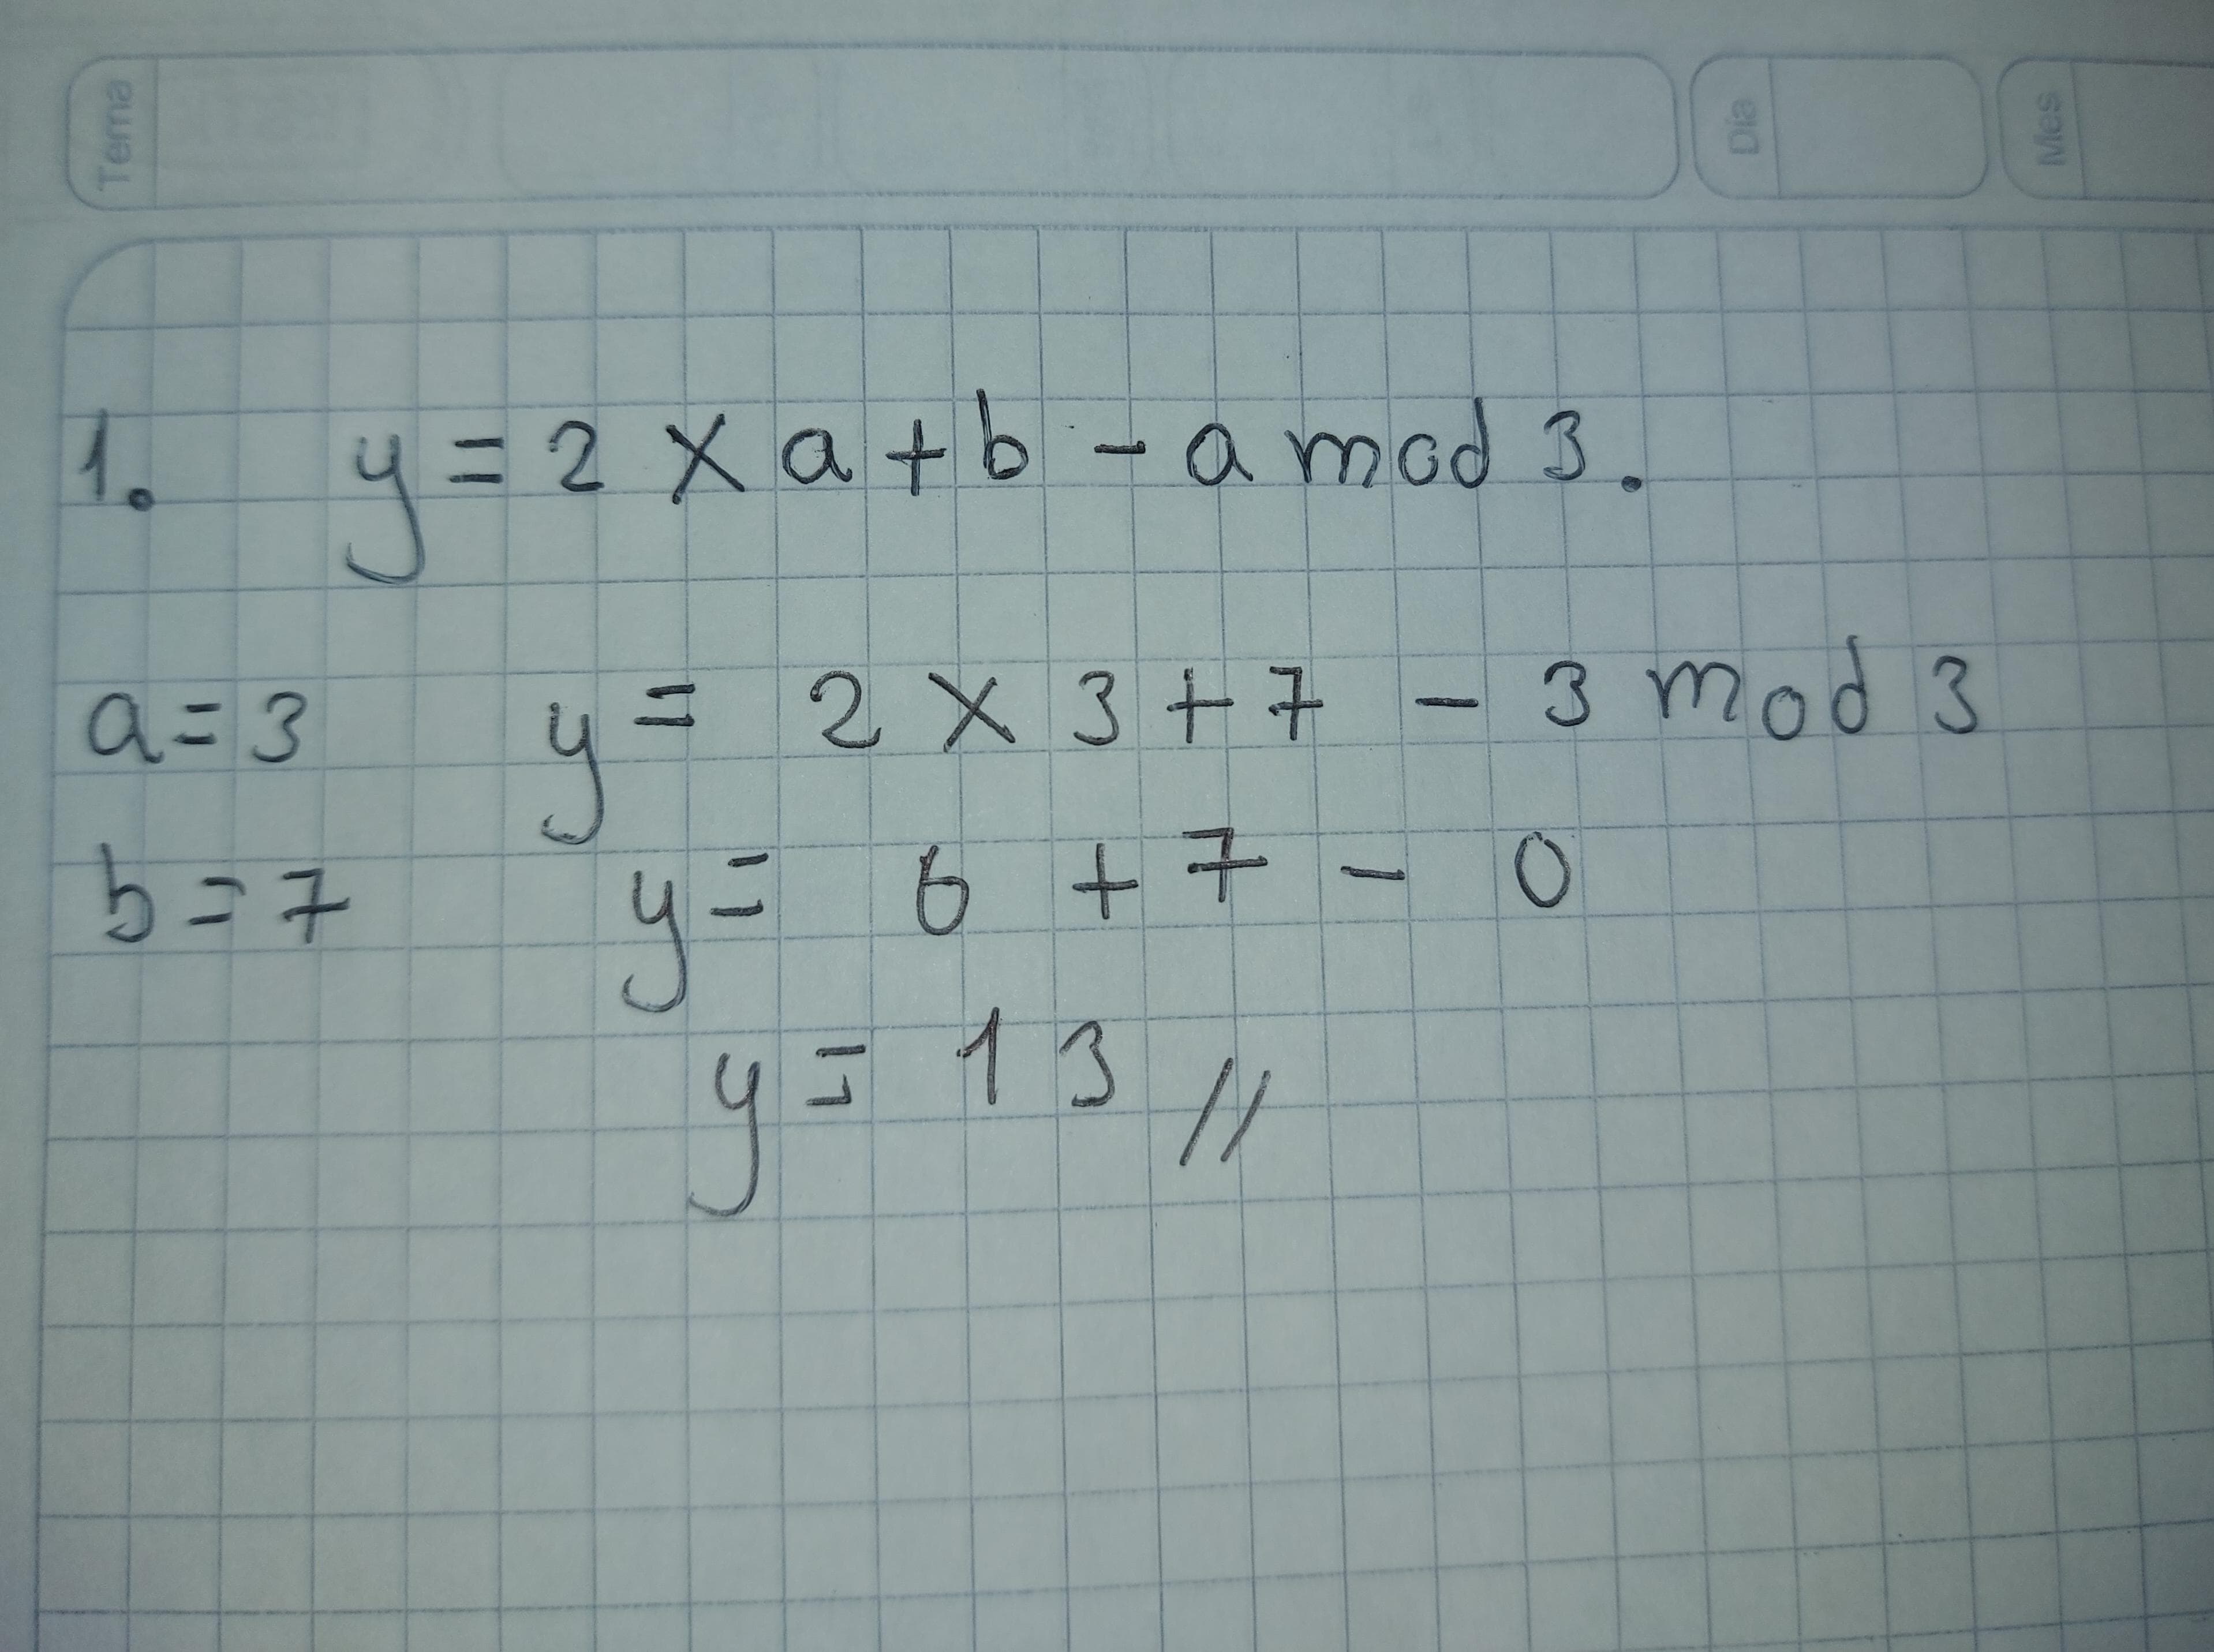 Tema Día Mes
1. y = 2 X a + b - a mod 3.
a = 3 y = 2 X 3 + 7 - 3 mod 3
b = 7 y = 6 + 7 - 0
y = 13 //